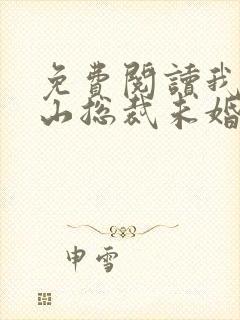 免費閱讀我
山総裁未婚
申雪